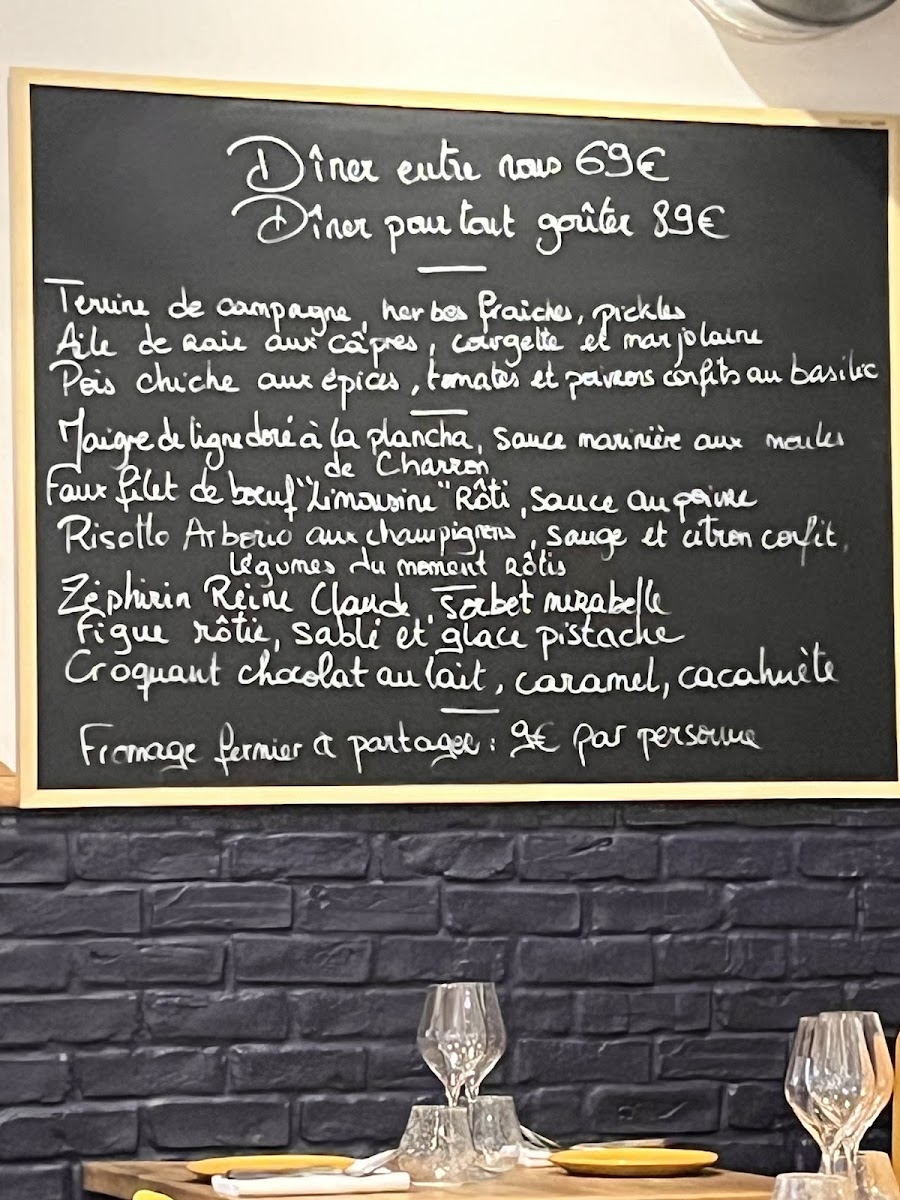 Dîner entre nous 69€
Dîner pour tout goûter 89€
Terrine de campagne, herbes fraiches, pickles
Aile de raie aux câpres, courgette et marjolaine
Pois chiche aux épices, tomates et poivrons confits au basilic
Maigre de ligne doré à la plancha, sauce marinière aux moules
de Charron
Faux filet de boeuf "Limousine" Rôti, sauce au poivre
Risotto Arborio aux champignons, sauge et citron confit,
légumes du moment rôtis
Zéphirin Reine Claude, sorbet mirabelle
Figue rôtie, sablé et glace pistache
Croquant chocolat au lait, caramel, cacahuète
Fromage fermier à partager : 9€ par personne